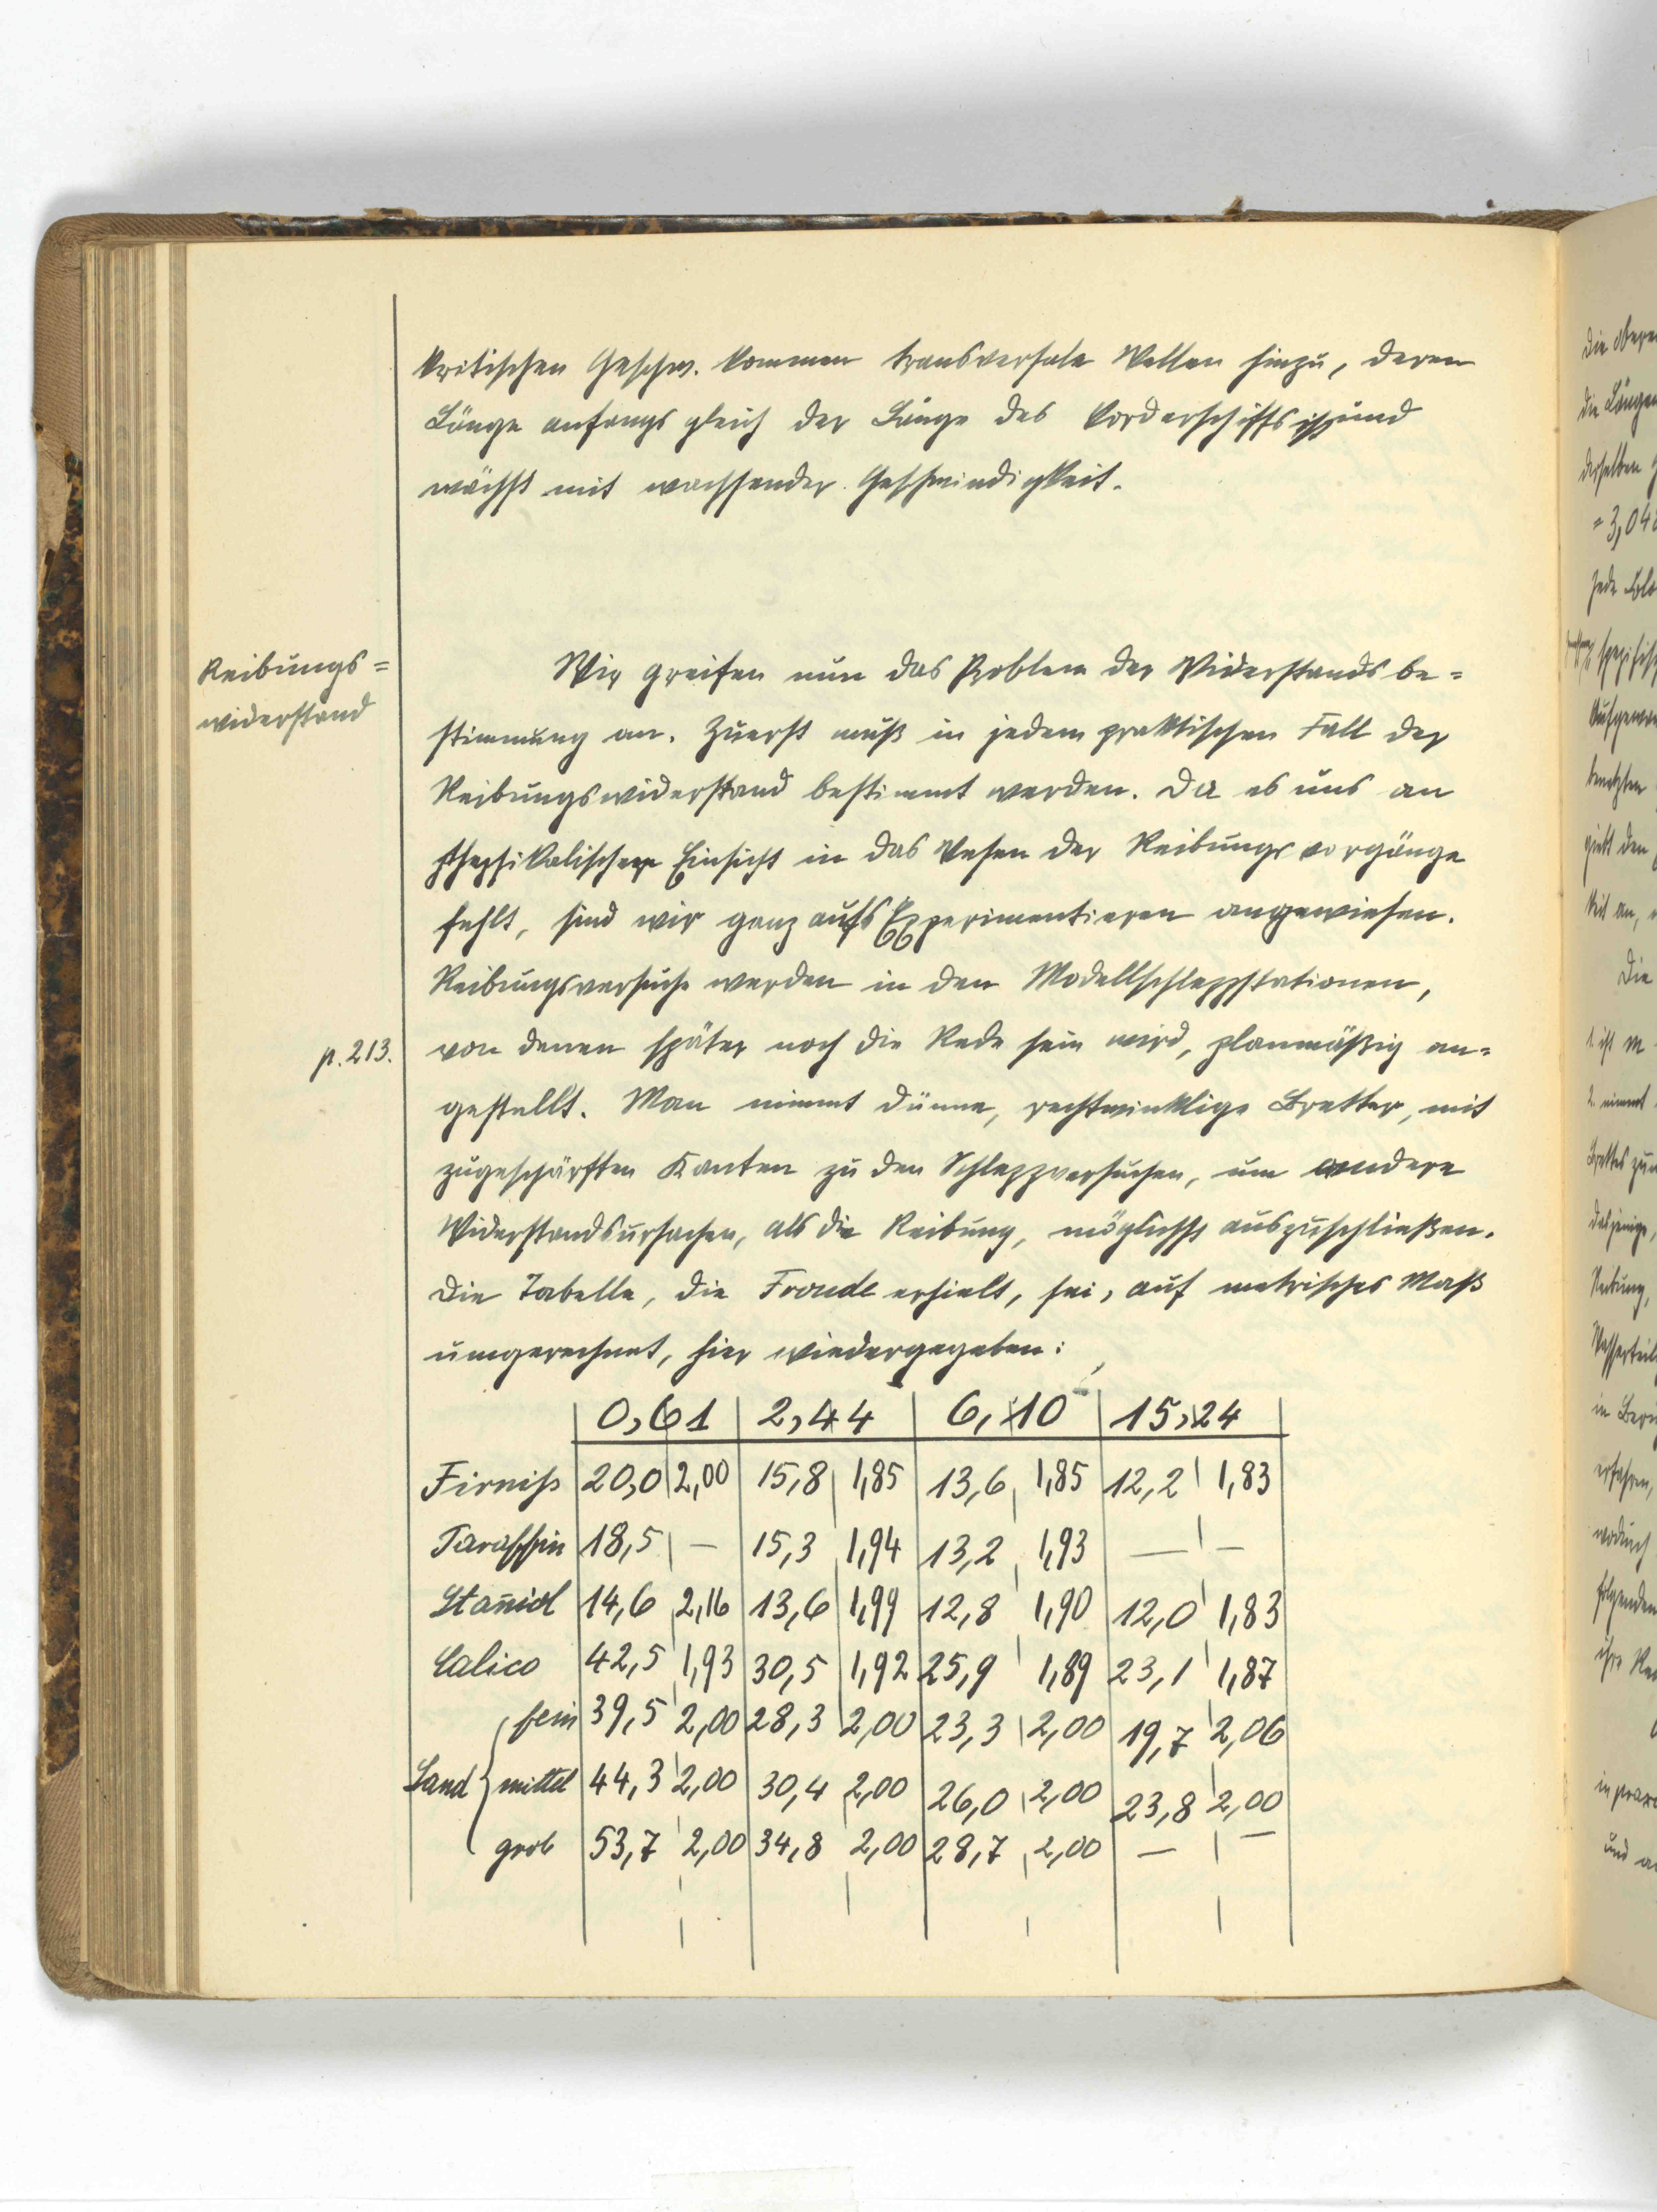 kritischen Geschw. kommen transversale Wellen hinzu, deren
Länge anfangs gleich der Länge des Vorderschiffs ist und
wächst mit wachsender Geschwindigkeit.
Reibungs=
widerstand
Wir greifen nun das Problem der Widerstandsbe=
stimmung an. Zuerst muß in jedem praktischen Fall der
Reibungswiderstand bestimmt werden. Da es uns an
physikalischer Einsicht in das Wesen der Reibungsvorgänge
fehlt, sind wir ganz aufs Experimentieren angewiesen.
Reibungsversuche werden in den Modellschleppstationen,
p. 213.
von denen später noch die Rede sein wird, planmäßig an=
gestellt. Man nimmt dünne, rechtwinklige Bretter, mit
zugeschärften Kanten zu den Schleppversuchen, um andere
Widerstandsursachen, als die Reibung, möglichst auszuschließen.
Die Tabelle, die Froude erhielt, sei, auf metrisches Maß
umgerechnet, hier wiedergegeben:
0,61 2,44 6,10 15,24
Firniss 20,0 2,00 15,8 1,85 13,6 1,85 12,2 1,83
Paraffin 18,5 — 15,3 1,94 13,2 1,93 — —
Stan̄iol 14,6 2,16 13,6 1,99 12,8 1,90 12,0 1,83
Calico 42,5 1,93 30,5 1,92 25,9 1,89 23,1 1,87
fein 39,5 2,00 28,3 2,00 23,3 2,00 19,7 2,06
Sand mittel 44,3 2,00 30,4 2,00 26,0 2,00 23,8 2,00
grob 53,7 2,00 34,8 2,00 28,7 2,00 — —
die
die Längen
derselben
= 3,04
Jede
Aufgewa
benetzten
giebt den
keit an,
Die
1. ist m
2. nimmt
Brettes zu
dasjenige,
Reibung,
Wasserteil
in Ber
erfahren,
wodurch
folgenden
ihre
in prax
und a